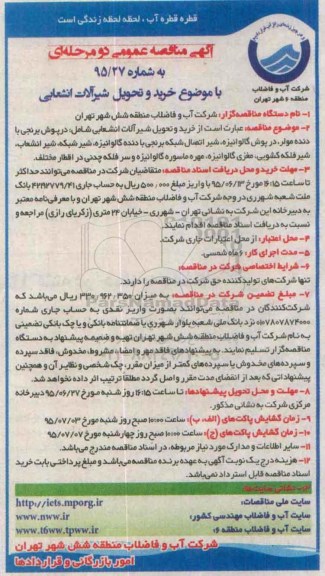 قطره قطره آب ، لحظه لحظه زندگی است
آگهی مناقصه عمومی دو مرحله‌ای
به شماره ۹۵/۲۷
با موضوع خرید و تحویل شیرآلات انشعابی
شرکت آب و فاضلاب
منطقه ۶ شهر تهران
۱- نام دستگاه مناقصه‌گزار: شرکت آب و فاضلاب منطقه شش شهر تهران
۲- موضوع مناقصه: عبارت است از خرید و تحویل شیرآلات انشعابی شامل: درپوش برنجی با
دنده موار، در پوش گالوانیزه، شیر اتصال شبکه برنجی با دنده گالوانیزه، شیر شبکه، شیر انشعاب،
شیر فلکه کشویی، مغزی گالوانیزه، مهره ماسوره گالوانیزه و سر فلکه چدنی در اقطار مختلف.
۳- مهلت خرید و محل دریافت اسناد مناقصه: متقاضیان شرکت در مناقصه می‌توانند حداکثر
تا ساعت ۱۶:۱۵ مورخ ۹۵/۰۶/۱۳ با واریز مبلغ ۵۰۰،۰۰۰ ریال به حساب جاری ۴۲۴۲۷۷۹/۴۱ بانک
ملت شعبه شهرری در وجه شرکت آب و فاضلاب منطقه شش شهر تهران و با معرفی‌نامه معتبر
به دبیرخانه این شرکت به نشانی تهران - شهرری - خیابان ۲۴ متری (زکریای رازی) مراجعه و
نسبت به دریافت اسناد مناقصه اقدام نمایند.
۴- محل اعتبار: از محل اعتبارات جاری شرکت.
۵- مدت اجرای کار: ۶ ماه شمسی.
۶- شرایط اختصاصی شرکت در مناقصه:
تنها شرکت‌های تولیدکننده حق شرکت در مناقصه را دارند.
۷- مبلغ تضمین شرکت در مناقصه: به میزان ۳۳۰،۹۶۲،۳۵۰ ریال می‌باشد که
شرکت‌کنندگان در مناقصه می‌توانند بصورت واریز نقدی به حساب جاری شماره
۰۱۶۷۸۰۷۸۷۴۰۰۰ نزد بانک ملی شعبه بلوار شهرری یا ضمانتنامه بانکی و یا چک بانکی تضمینی
به نام شرکت آب و فاضلاب منطقه شش شهر تهران تهیه و ضمیمه پیشنهاد به دستگاه
مناقصه‌گزار تسلیم نمایند. به پیشنهادهای فاقد مهر و امضاء، مشروط، مخدوش، فاقد سپرده
و سپرده‌های مخدوش یا سپرده‌های کمتر از میزان مقرر، چک شخصی و نظایر آن و همچنین
پیشنهاداتی که بعد از انقضای مدت مقرر واصل گردد مطلقا ترتیب اثر داده نخواهد شد.
۸- مهلت و محل تحویل پیشنهادها: تا ساعت ۱۶:۱۵ روز شنبه مورخ ۹۵/۰۶/۲۷ دبیرخانه
مرکزی شرکت به نشانی مذکور.
۹- زمان گشایش پاکت‌های (الف، ب): ساعت ۱۰:۰۰ صبح روز شنبه مورخ ۹۵/۰۷/۰۳
۱۰- زمان گشایش پاکت‌های (ج): ساعت ۱۰:۰۰ صبح روز چهارشنبه مورخ ۹۵/۰۷/۰۷
۱۱- سایر اطلاعات و مدارک مورد نیاز مربوطه، در اسناد مناقصه مندرج می‌باشد.
۱۲- هزینه درج یک نوبت آگهی به عهده برنده مناقصه می‌باشد و مبلغ پرداختی بابت خرید
اسناد مناقصه قابل استرداد نمی‌باشد.
۱۳- نشانی سایت‌ها:
سایت ملی مناقصات: http://iets.mporg.ir
سایت آب و فاضلاب مهندسی کشور: www.nww.ir
سایت آب و فاضلاب منطقه ۶: www.t6ww.tpww.ir
شرکت آب و فاضلاب منطقه شش شهر تهران
امور بازرگانی و قراردادها